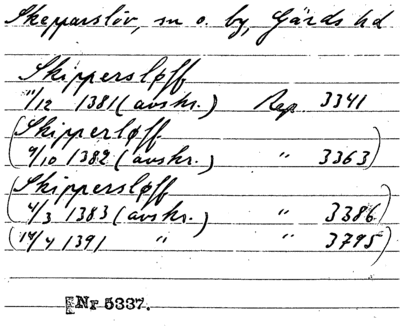 Skepparslöv, sn o. by, Gärds hd
Skippersløff
11/12 1381 (avskr.) Rep. 3341
(Skipperløff
9/10 1382 (avskr.) " 3363)
(Skippersløff
4/3 1383 (avskr.) " 3386)
(14/4 1391 " " 3795)
Nr 5337.